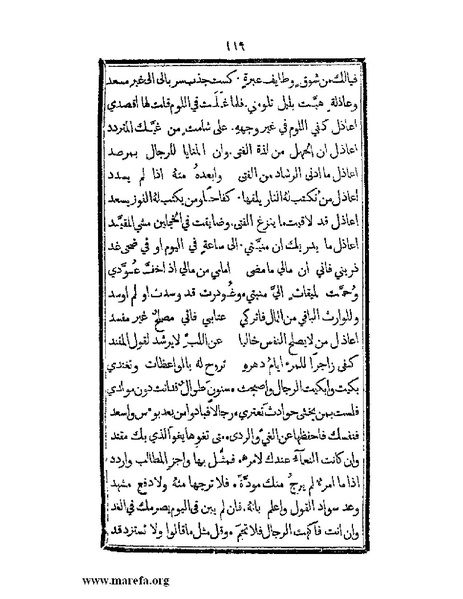 ١١٩
فيالك من شوق وطايف عبرة كست جذب سربالى الى غير مسعد
وعاذلة هبّت بليل تلومني فلما غلت في اللوم قلت لها اقصدي
اعاذل كفي اللوم في غير وجهه على شامت من غيك المتردد
اعاذل ان الجهل من لذة الفتى وان المنايا للرجال بمرصد
اعاذل ما ادنى الرشاد من الفتى وابعدهُ منهُ اذا لم يسدد
اعاذل من تكتب له النار يلقها كفاحا ومن يكتب له الفوز يسعد
اعاذل قد لاقيت ما ينزع الفتى وضايقت في الحجلين مشي المقيد
اعاذل ما يدريك ان منيتي الى ساعة في اليوم او في ضحى غد
ذريني فاني ان مالي ما مضى امامي من مالي اذ اخف عوّدي
وحمّت لميقات اليّ منيتي وغودرت قد وسدت او لم اوسد
وللوارث الباقي من المال فاتركي عتابي فاني مصلح غير مفسد
اعاذل من لا يصلح النفس خاليا عن اللب لا يرشد لقول المفند
كفى زاجرا للمرء ايام دهرهِ تروح له بالواعظات وتغتدي
بكيت وابكيت الرجال واصبحت سنون طوال قد اتت دون مولدي
فلست بمن يخشى حوادث تعتري رجالا فبادوا من بعد بوس واسعد
فنفسك فاحفظها عن الغيّ والردى متى تغوها يغو الذي بك يقتد
وان كانت النعماء عندك لامرء فمثل بها واجز المطالب واردد
اذا ما امرء لم يرج منك مودّة فلا ترجها منه ولا دفع مشهد
وعد سواه القول واعلم بانهُ فان لم يبن في اليوم يصرمك في الغد
وان انت فاكهت الرجال فلا تتهم وقل مثل ما قالوا ولا تستزد قد
www.marefa.org